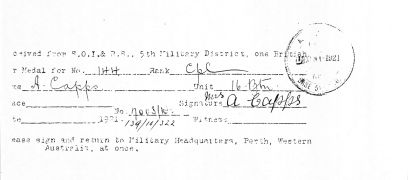 ceived from S.O.I.& R.S., 5th Military District, one British
r Medal for No. 144 Rank Cpl
me A. Capps Unit 16 Btn
ace Signature Mrs A Capps
te 1921. Witness
ease sign and return to Military Headquarters, Perth, Western
Australia, at once.